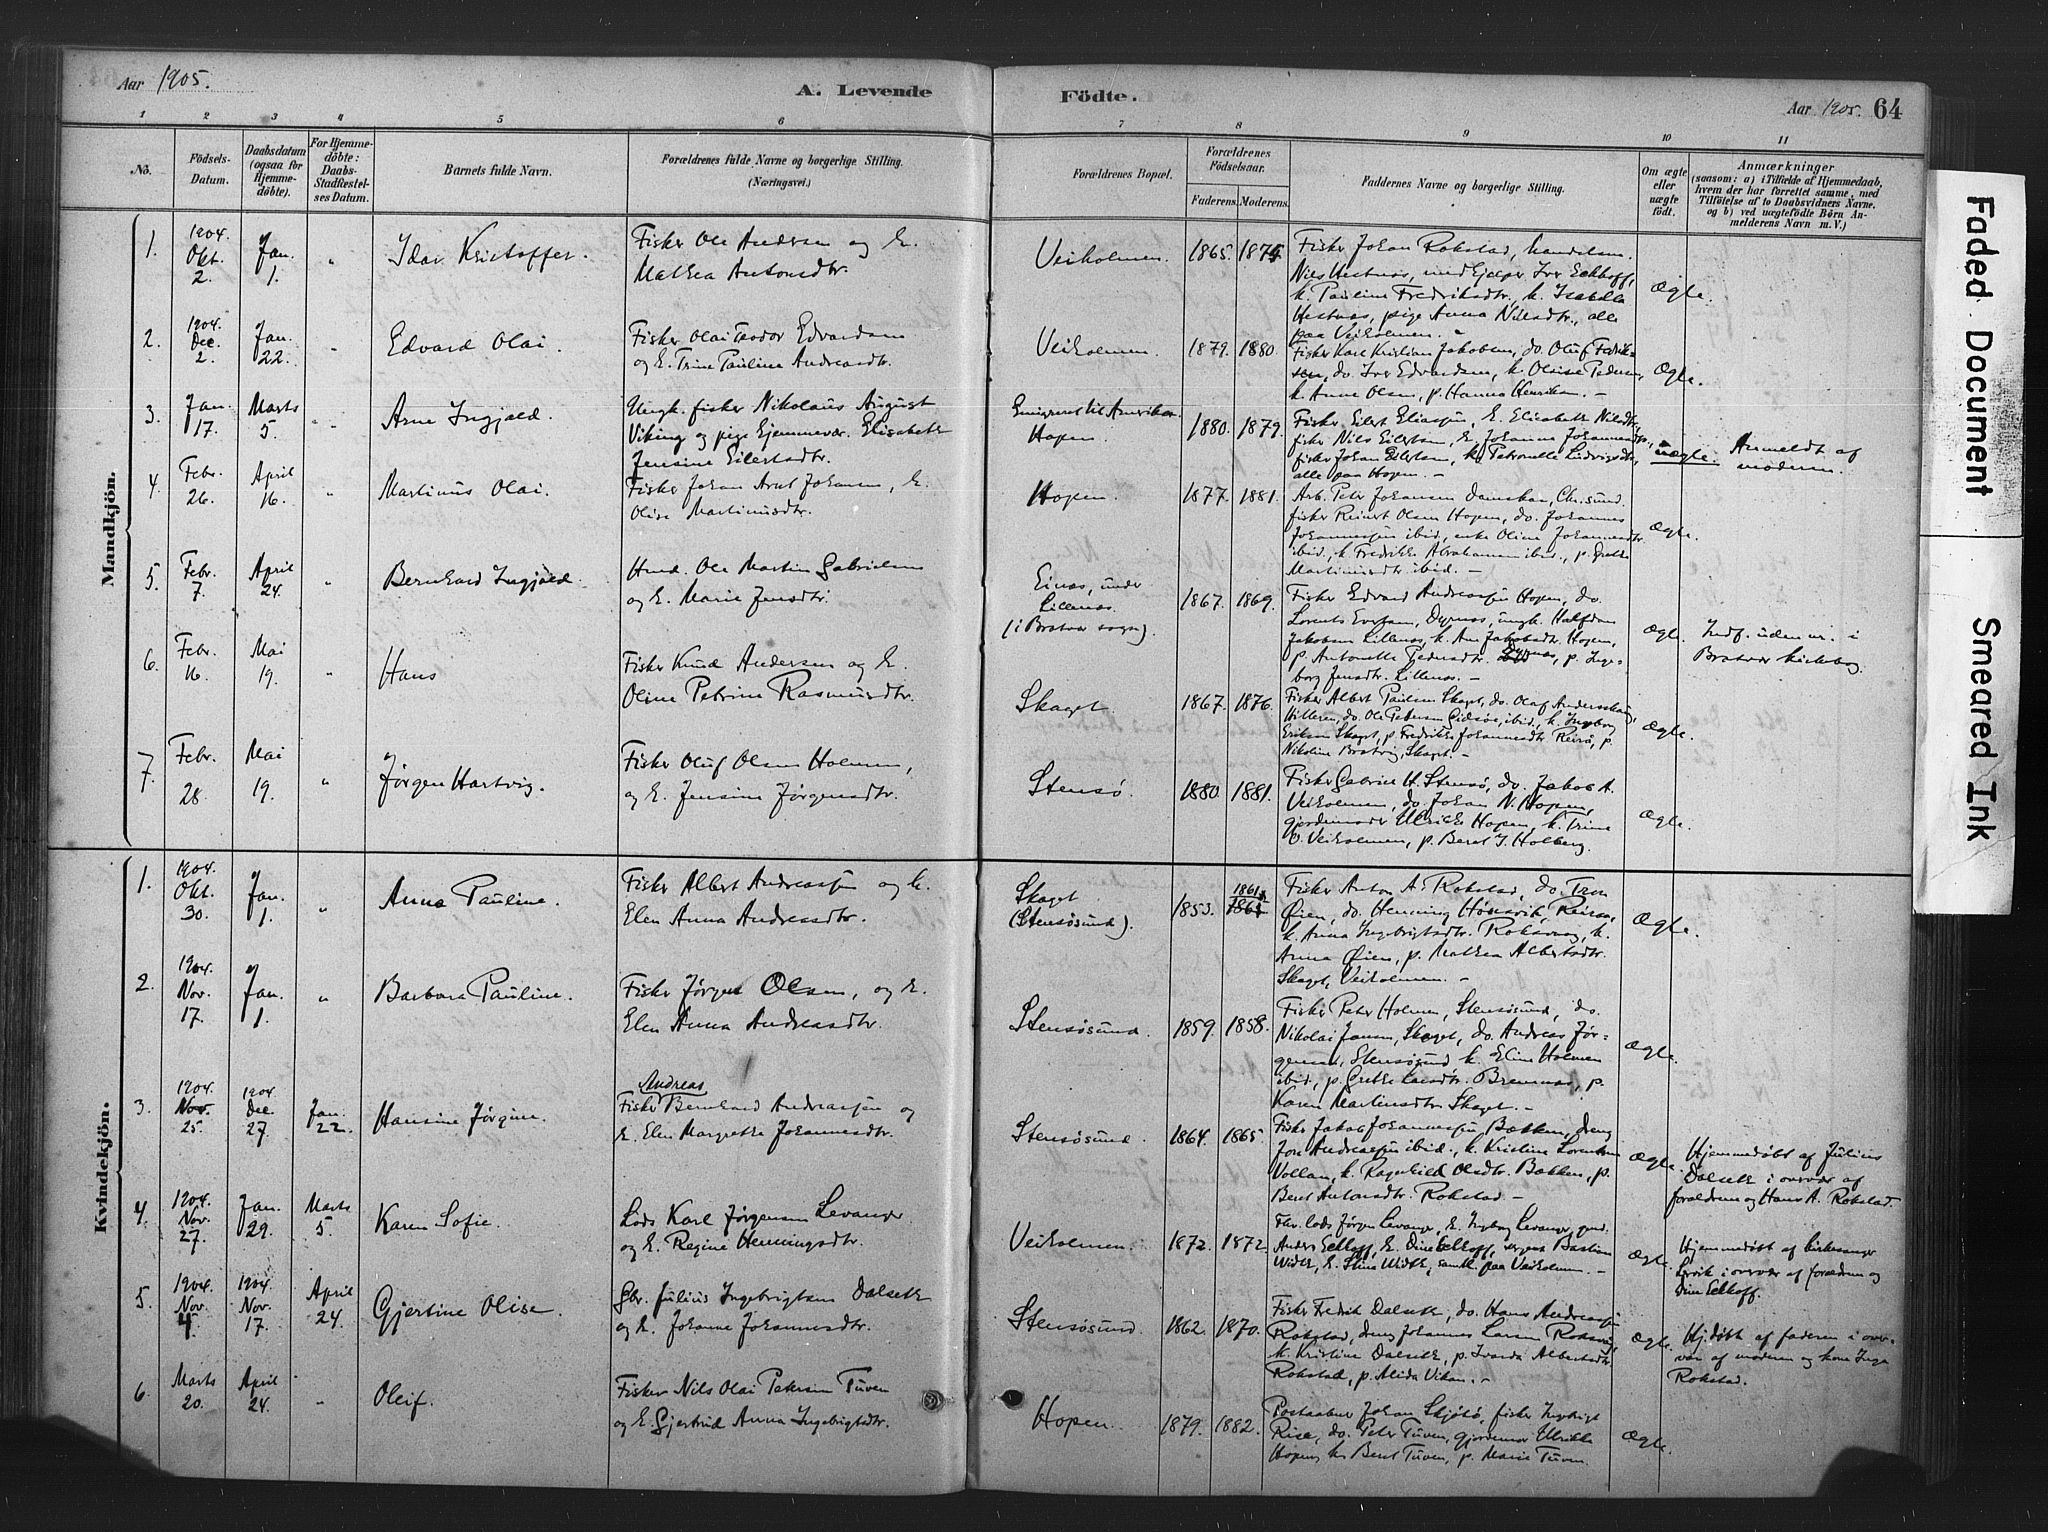 Aar 1905.
A. Levende Födte.
Aar 1905. 64
1 2 3 4 5 6 7 8 9 10 11
No.
Födsels-Datum.
Daabsdatum (ogsaa for Hjemme-döbte).
For Hjemme-döbte: Daabs-Stadfæstel-ses Datum.
Barnets fulde Navn.
Forældrenes fulde Navne og borgerlige Stilling.
(Næringsvei.)
Forældrenes Bopæl.
Forældrenes Födselsaar.
Faderens. Moderens.
Faddernes Navne og borgerlige Stilling.
Om ægte eller uægte födt.
Anmærkninger
(saasom: a) i Tilfælde af Hjemmedaab,
hvem der har forrettet samme, med
Tilföielse af to Daabsvidners Navne,
og b) ved uægtefödte Börn An-
melderens Navn m. V.)
Mandkjön.
1. 1904. Okt. 2. Jan. 1. " Idar Kristoffer.
Fisker Ole Andersen og h.
Mathea Antonsdtr.
Veiholmen. 1865. 1874
Fisker Johan Rokstad, handelsm.
Nils Hestnæs, medhjælper Iver Eckhoff,
k. Pauline Fredriksdtr, k. Isabella
Hestnæs, pige Anna Nilsdtr., alle
paa Veiholmen.
Ægte.
2. 1904. Dec. 2. Jan. 22. " Edvard Olai.
Fisker Olai Teodor Edvardsen
og h. Trine Pauline Andreasdtr.
Veiholmen. 1879. 1880.
Fisker Karl Kristian Jakobsen, do. Oluf Fredrik-
sen, do. Iver Edvardsen, k. Olise Pedersen,
k. Anne Olsen, p. Hanna Henriksen. -
Ægte.
3. Jan. 17. Marts 5. " Arne Ingjald.
Ungk. fisker Nikolaus August
Viking og pige hjemmevær. Elisabeth
Jensine Eilertsdtr.
Emigreret til Amerika.
Hopen. 1880. 1879.
Fisker Eilert Eliassen, h. Elisabeth Nilsdtr,
fisker Nils Eilertsen, h. Johanne Johannesdtr,
fisker Johan Eilertsen, k. Petronelle Ludvigsdtr,
alle paa Hopen. -
uægte.
Anmeldt af
moderen.
4. Febr. 26. April 16. " Martinus Olai.
Fisker Johan Arnt Johansen, h.
Olise Martinusdtr.
Hopen. 1877. 1881.
Arb. Peter Johansen Damskau, Chr.sund.
fisker Reinert Olsen Hopen, do. Johannes
Johannessen ibid, enke Oline Johannesdtr
ibid, k. Fredrikke Abrahamsen ibid., p. Grethe
Martinusdtr ibid. -
Ægte.
5. Febr. 7. April 24. " Bernhard Ingjald.
Husd. Ole Martin Gabrielsen
og h. Marie Jensdtr.
Einæs, under
Lillenæs.
(i Bratvær sogn). 1867. 1869.
Fisker Edvard Andreassen Hopen, do.
Lorents Evensen, Dyrnæs, ungk. Halfdan
Jakobsen Lillenæs, k. Ane Jakobsdtr. Hopen,
p. Antonette Pedersdtr. Dyrnæs, p. Inge-
borg Jensdtr. Lillenæs. -
Ægte.
Indf. uden nr. i
Bratvær kirkebog.
6. Febr. 16. Mai 19. " Hans
Fisker Knud Andersen og h.
Oline Petrine Rasmusdtr.
Skaget. 1867. 1876.
Fisker Albert Paulsen Skaget, do. Olaf Andersskaug,
Hilleren, do. Ole Petersen Gidsøe, ibid, k. Ingeborg
Eriksen Skaget, p. Fredrikke Johannesdtr Reirsø, p.
Nikoline Bratvig, Skaget. -
Ægte.
7. Febr. 28. Mai 19. " Jørgen Hartvig.
Fisker Oluf Olsen Holmen,
og h. Jensine Jørgensdtr.
Stensø. 1880. 1881.
Fisker Gabriel H. Stensø, do. Jakob A.
Veiholmen, do. Johan N. Hopen,
gjordemoder Ulrikke Hopen, k. Trine
Veiholmen, p. Beret J. Holberg.
Ægte.
Kvindekjön.
1. 1904. Okt. 30. Jan. 1. " Anna Pauline.
Fisker Albert Andreassen og h.
Elen Anna Andreasdtr.
Skaget
(Stensøsund). 1853. 1861
Fisker Anton A. Rokstad, do. Tron
Øien, do. Henning Hønsvik, Reirsø,
k. Anna Ingebrigtsdtr. Roksvaag, k.
Anna Øien, p. Mathea Albertsdtr.
Skaget, Veiholmen. -
Ægte.
2. 1904. Nov. 17. Jan. 1. " Barbara Pauline.
Fisker Jørgen Olsen, og h.
Elen Anna Andreasdtr.
Stensøsund. 1859. 1858.
Fisker Peter Holmen, Stensøsund, do.
Nikolai Jansen, Skaget, do. Andreas Jør-
gensen, Stensøsund k. Eline Holmen
ibid, p. Grethe Larsdtr. Bremnæs, p.
Karen Martinsdtr Skaget. -
Ægte.
3. 1904. Nov. 25. 1904 Dec. 27. Jan. 22. Hansine Jørgine.
Andreas
Fisker Bernhard Andreassen og
h. Elen Margrethe Johannesdtr.
Stensøsund. 1864. 1865.
Fisker Jakob Johannessen Bækken, dreng
Jon Andreassen ibid., k. Kristine Lorentsen
Vollan, k. Ragnhild Olsdtr. Bækken, p.
Beret Antonsdtr. Rokstad -
Ægte.
Hjemmedøbt af Julius
Dalseth i overvær af
forældrene og Hans A. Rokstad.
4. 1904. Nov. 27. Jan. 29. Marts 5. Karen Sofie.
Lods Karl Jørgensen Levanger
og h. Regine Henningsdtr.
Veiholmen. 1872. 1872.
Fhv. lods Jørgen Levanger, h. Ingeborg Levanger, gmd.
Anders Eckhoff, h. Dina Eckhoff, sergent Bastian
Width, h. Stina Width, samtl. paa Veiholmen. -
Ægte.
Hjemmedøbt af kirkesanger
Lervik i overvær af forældrene og
Dina Eckhoff.
5. 1904. Nov. 4. 1904. Nov. 17. April 24. Gjertine Olise.
Gbr. Julius Ingebrigtsen Dalseth
og h. Johanne Johannesdtr.
Stensøsund. 1862. 1870.
Fisker Fredrik Dalseth, do. Hans Andreassen
Rokstad, dreng Johannes Larsen Roksvaag,
k. Kristine Dalseth, p. Ivarda Albertsdtr
Rokstad, p. Alida Vikan. -
Ægte.
Hj.døbt af faderen i over-
vær af moderen og kone Inga
Rokstad.
6. Marts 20. April 24. " Oleif.
Fisker Nils Olai Petersen Tuven
og h. Gjertrud Anna Ingebrigtsdtr.
Hopen. 1879. 1882.
Postaabner Johan Skjøtø, fisker Ingebrigt
Risø, do. Peter Tuven, gjordemor Ulrikke
Hopen, k. Beret Tuven, p. Marie Tuven.
Ægte.
Faded Document
Smeared Ink